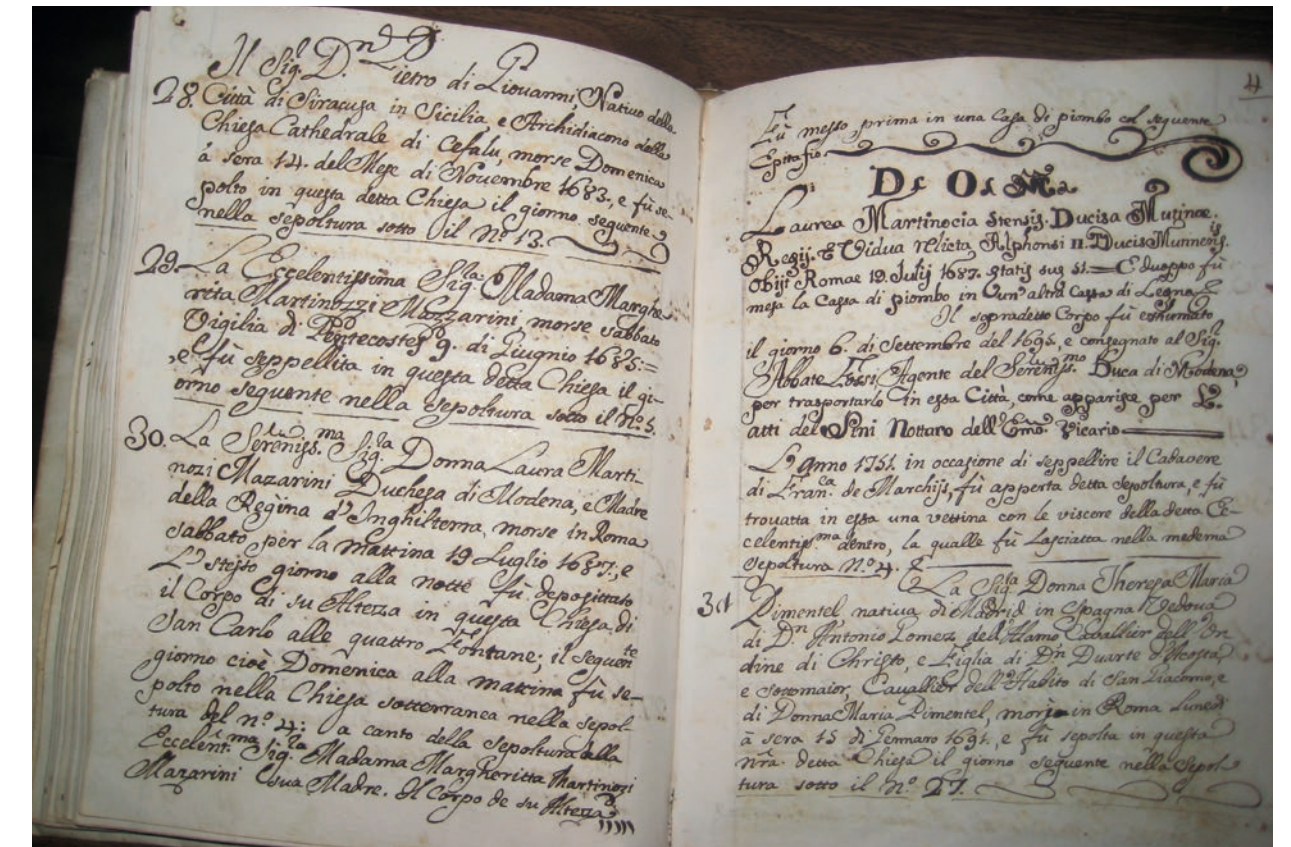 Il Sig.r D.n Pietro di Giovanni, Nativo della
28. Città di Siracusa in Sicilia e Archidiacono della
Chiesa Cathedrale di Cefalu, morse Domenica
à sera 14. del Mese di Novembre 1683., e fù se-
polto in questa detta Chiesa il giorno seguente
nella sepoltura sotto il Nº 13.
29. La Eccelentissima Sig.la Madama Marghe
rita Martinozzi Mazzarini, morse sabbato
Vigilia di Pentecoste 9. di Giugnio 1685.=
e fù seppellita in questa detta Chiesa il gi-
orno seguente nella sepoltura sotto il nº 5.
30. La Sereniss.ma Sig.la Donna Laura Marti-
nozi Mazarini Duchesa di Modena, e Madre
della Regina d'Inghilterra, morse in Roma
sabbato per la mattina 19 Luglio 1687., e
L'stesso giorno alla notte fù deposittato
il Corpo di su Altezza in questa Chiesa di
San Carlo alle quattro Fontane; il seguente
giorno cioè Domenica alla mattina fù se-
polto nella Chiesa sotterranea nella sepol-
tura del nº 4: a canto della sepoltura della
Eccelent.ma Sig.la Madama Margheritta Martinozi
Mazarini sua Madre. Il Corpo de su Altezza
4
Fù messo prima in una Casa di piombo col seguente
Epitafio.
D. O. M.
Laurea Martinocia stensis. Ducisa Mutinae.
Regij. E Vidua relicta Alphonsi II. Ducis Mutinens.
Obijt Romae 19. Julij 1687. etatis sue 51.= E duoppo fù
messa la Cassa di piombo in Un'altra Cassa di Legno
Il sopradetto Corpo fù eshumato
il giorno 6. di Settembre del 1695., e consegnato al Sig.r
Abbate Agente del Sereniss.mo Duca di Modena,
per trasportarlo in essa Città, come apparisce per L.
atti del Pini Nottaro dell'Emo. Vicario
L'anno 1751. in occasione di seppellire il Cadavere
di Fran.ca de Marchijs, fù apperta detta sepoltura, e fù
trouatta in essa una vettina con le viscere della detta Ec-
celentiss.ma dentro, la qualle fù Lasciatta nella medema
sepoltura N.º 4.
La Sig.la Donna Theresa Maria
31 Pimentel nativa di Madrid in Spagna Vedoua
di D.n Antonio Gomez dell'Alamo Cavallier dell'Or
dine di Christo, e Figlia di D.n Duarte d'Acosta,
e Sottomaior, Cauallier dell'Habito di San Giacomo, e
di Donna Maria Pimentel, morse in Roma Lunedì
à sera 15 di Gennaro 1691., e fù sepolta in questa
nra. detta Chiesa il giorno seguente nella sepol-
tura sotto il nº 27.